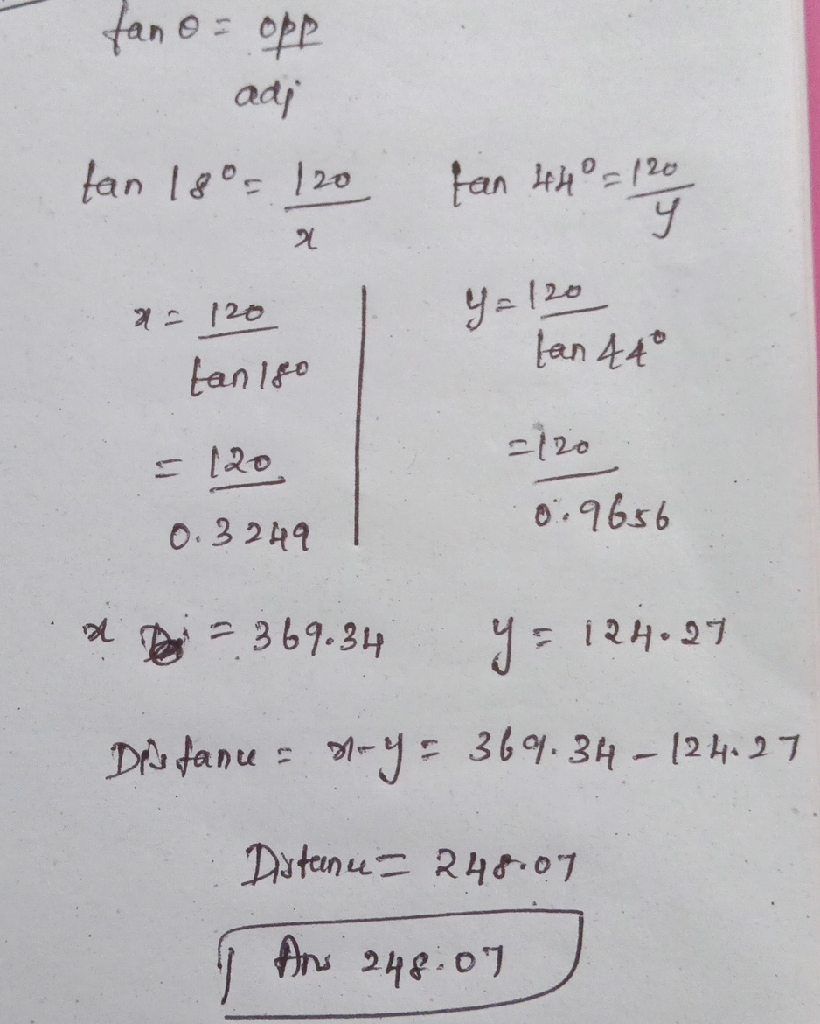 tan θ = opp
adj
tan 18° = 120 tan 44° = 120
x y
x = 120 y = 120
tan 180 tan 44°
= 120 = 120
0.3249 0.9656
x = 369.34 y = 124.27
Distance = x-y = 369.34 - 124.27
Distance = 248.07
Ans 248.07